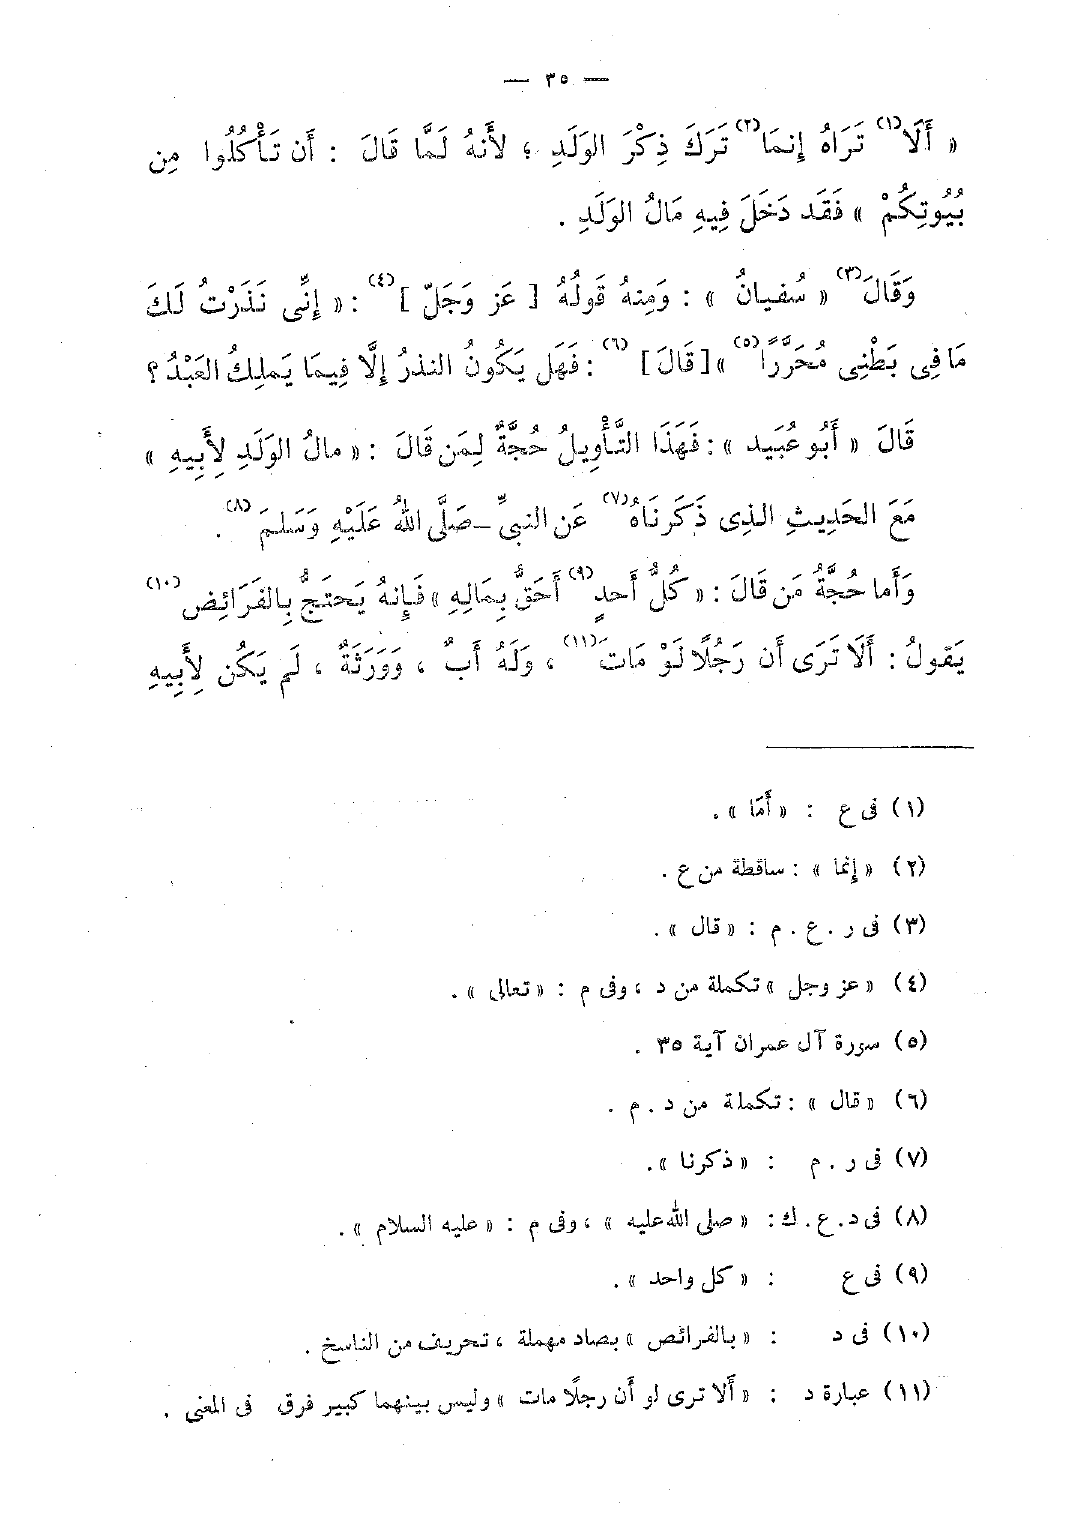 — ٣٥ —
« أَلَا(١) تَرَاهُ إِنمَا(٢) تَرَكَ ذِكْرَ الوَلَدِ ؛ لأَنهُ لَمَّا قَالَ : أَن تَأْكُلُوا مِن
بُيُوتِكُمْ » فَقَد دَخَلَ فِيهِ مَالُ الوَلَدِ .
وَقَالَ(٣) « سُفيانُ » : وَمِنهُ قَولُهُ [ عَز وَجَلّ ](٤) : « إِنِّى نَذَرْتُ لَكَ
مَا فِى بَطْنِى مُحَرَّرًا(٥) » [ قَالَ ](٦) : فَهَل يَكُونُ النذرُ إِلَّا فِيمَا يَملِكُ العَبْدُ ؟
قَالَ « أَبُو عُبَيد » : فَهَذَا التَّأْوِيلُ حُجَّةٌ لِمَن قَالَ : « مالُ الوَلَدِ لِأَبِيهِ »
مَعَ الحَدِيثِ الذِى ذَكَرنَاهُ(٧) عَن النبىِّ – صَلَّى اللهُ عَلَيْهِ وَسَلمَ(٨) .
وَأَما حُجَّةُ مَن قَالَ : « كُلُّ أَحدٍ(٩) أَحَقُّ بِمَالِهِ » فَإِنهُ يَحتَجُّ بِالفَرَائِضِ(١٠)
يَقولُ : أَلَا تَرَى أَن رَجُلًا لَوْ مَاتَ(١١) ، وَلَهُ أَبٌ ، وَوَرَثَةٌ ، لَم يَكُن لِأَبِيهِ
(١) فى ع : « أَمَا » .
(٢) « إِنما » : ساقطة من ع .
(٣) فى ر . ع . م : « قال » .
(٤) « عز وجل » تكملة من د ، وفى م : « تعالى » .
(٥) سورة آل عمران آية ٣٥ .
(٦) « قال » : تكملة من د . م .
(٧) فى ر . م : « ذكرنا » .
(٨) فى د . ع . ك : « صلى الله عليه » ، وفى م : « عليه السلام » .
(٩) فى ع : « كل واحد » .
(١٠) فى د : « بالفرائص » بصاد مهملة ، تحريف من الناسخ .
(١١) عبارة د : « أَلا ترى لو أن رجلًا مات » وليس بينهما كبير فرق فى المعنى .